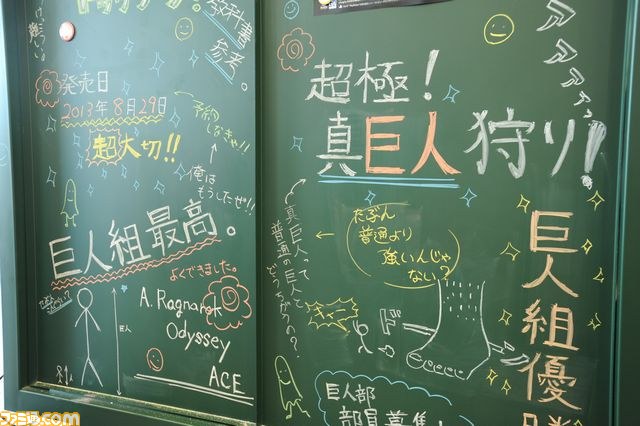 教科書
参考。
発売日
2013年8月29日
超大切!!
予約
しなきゃ!!
俺は
もうしたぜ!!
巨人組最高。
よくできました。
巨人
A. Ragnarok
Odyssey
ACE
超極!
真巨人狩り!
真巨人って
普通の巨人と
どうちがうの?
たぶん
普通より
強いんじゃ
ない?
キャー
巨人部
部員募集!
巨人組優勝
ファミ通.com